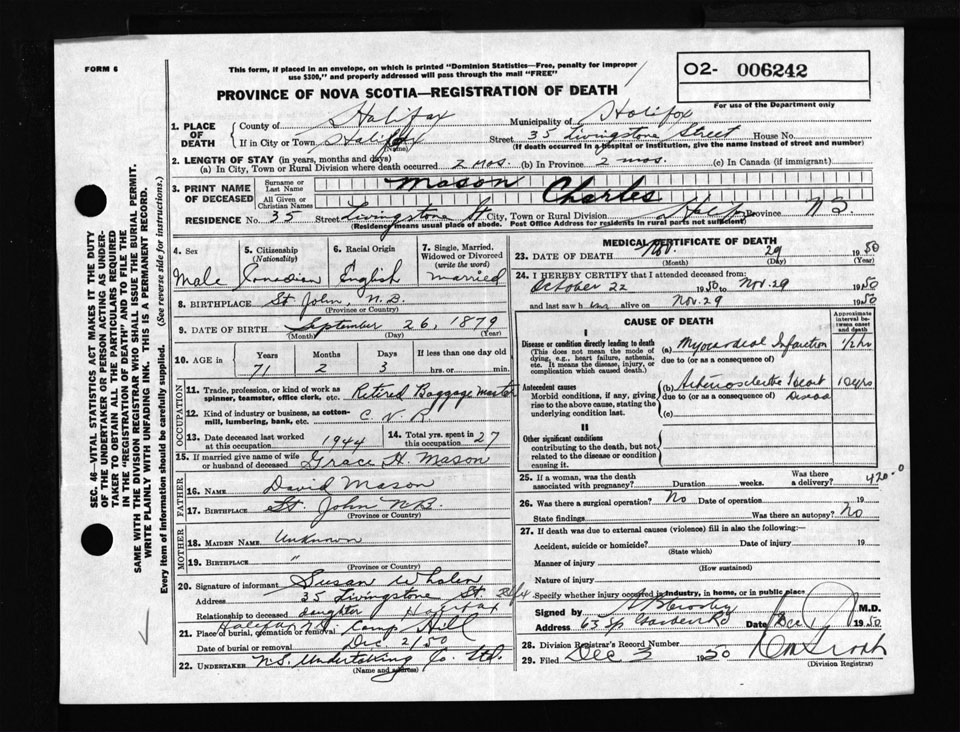 FORM 6
This form, if placed in an envelope, on which is printed "Dominion Statistics—Free, penalty for improper
use $300," and properly addressed will pass through the mail "FREE"
O2- 006242
For use of the Department only
PROVINCE OF NOVA SCOTIA—REGISTRATION OF DEATH
SEC. 46—VITAL STATISTICS ACT MAKES IT THE DUTY
OF THE UNDERTAKER OR PERSON ACTING AS UNDER-
TAKER TO OBTAIN ALL THE PARTICULARS REQUIRED
IN THE "REGISTRATION OF DEATH" AND TO FILE THE
SAME WITH THE DIVISION REGISTRAR WHO SHALL ISSUE THE BURIAL PERMIT.
WRITE PLAINLY WITH UNFADING INK. THIS IS A PERMANENT RECORD.
Every item of information should be carefully supplied. (See reverse side for instructions.)
1. PLACE OF DEATH County of Halifax Municipality of Halifax
If in City or Town Halifax (Name) Street 35 Livingstone Street House No.
(If death occurred in a hospital or institution, give the name instead of street and number)
2. LENGTH OF STAY (in years, months and days)
(a) In City, Town or Rural Division where death occurred 2 mos. (b) In Province 2 mos. (c) In Canada (if immigrant)
3. PRINT NAME OF DECEASED Surname or Last Name Mason
All Given or Christian Names Charles
RESIDENCE No. 35 Street Livingstone St City, Town or Rural Division Hlfx Province N S
(Residence means usual place of abode. Post Office Address for residents in rural parts not sufficient)
4. Sex Male
5. Citizenship (Nationality) Canadian
6. Racial Origin English
7. Single, Married, Widowed or Divorced (write the word) married
8. BIRTHPLACE St John, N.B.
(Province or Country)
9. DATE OF BIRTH September 26, 1879
(Month) (Day) (Year)
10. AGE in Years 71 Months 2 Days 3 If less than one day old hrs. or min.
OCCUPATION
11. Trade, profession, or kind of work as spinner, teamster, office clerk, etc. Retired Baggage master
12. Kind of industry or business, as cotton-mill, lumbering, bank, etc. C. N. R
13. Date deceased last worked at this occupation 1944 14. Total yrs. spent in this occupation 27
15. If married give name of wife or husband of deceased Grace H. Mason
FATHER
16. NAME David Mason
17. BIRTHPLACE St. John N.B.
(Province or Country)
MOTHER
18. MAIDEN NAME Unknown
19. BIRTHPLACE "
(Province or Country)
20. Signature of informant Susan Whalen
Address 35 Livingstone St. Hlfx
Relationship to deceased daughter Halifax
21. Place of burial, cremation or removal Halifax N.S. Camp Hill
Date of burial or removal Dec 2/50
22. UNDERTAKER N.S. Undertaking Co. Ltd.
(Name and address)
MEDICAL CERTIFICATE OF DEATH
23. DATE OF DEATH Nov. 29 1950
(Month) (Day) (Year)
24. I HEREBY CERTIFY that I attended deceased from
October 22 1950 to Nov. 29 1950
and last saw him alive on Nov. 29 1950
CAUSE OF DEATH
Approximate interval between onset and death
I
Disease or condition directly leading to death
(This does not mean the mode of dying, e.g., heart failure, asthenia, etc. It means the disease, injury, or complication which caused death.)
(a) Myocardial Infarction 1/2 hr
due to (or as a consequence of)
Antecedent causes
Morbid conditions, if any, giving rise to the above cause, stating the underlying condition last.
(b) Arteriosclerotic Heart 10 yrs
due to (or as a consequence of)
(c)
II
Other significant conditions
contributing to the death, but not related to the disease or condition causing it.
420-0
25. If a woman, was the death associated with pregnancy? Duration weeks. Was there a delivery?
26. Was there a surgical operation? No Date of operation 19
State findings Was there an autopsy? No
27. If death was due to external causes (violence) fill in also the following:—
Accident, suicide or homicide? Date of injury 19
(State which)
Manner of injury
(How sustained)
Nature of injury
Specify whether injury occurred in industry, in home, or in public place
Signed by Crosby M.D.
Address 63 Sp Garden Rd Date Dec 1950
28. Division Registrar's Record Number
29. Filed Dec 3 1950
(Division Registrar)